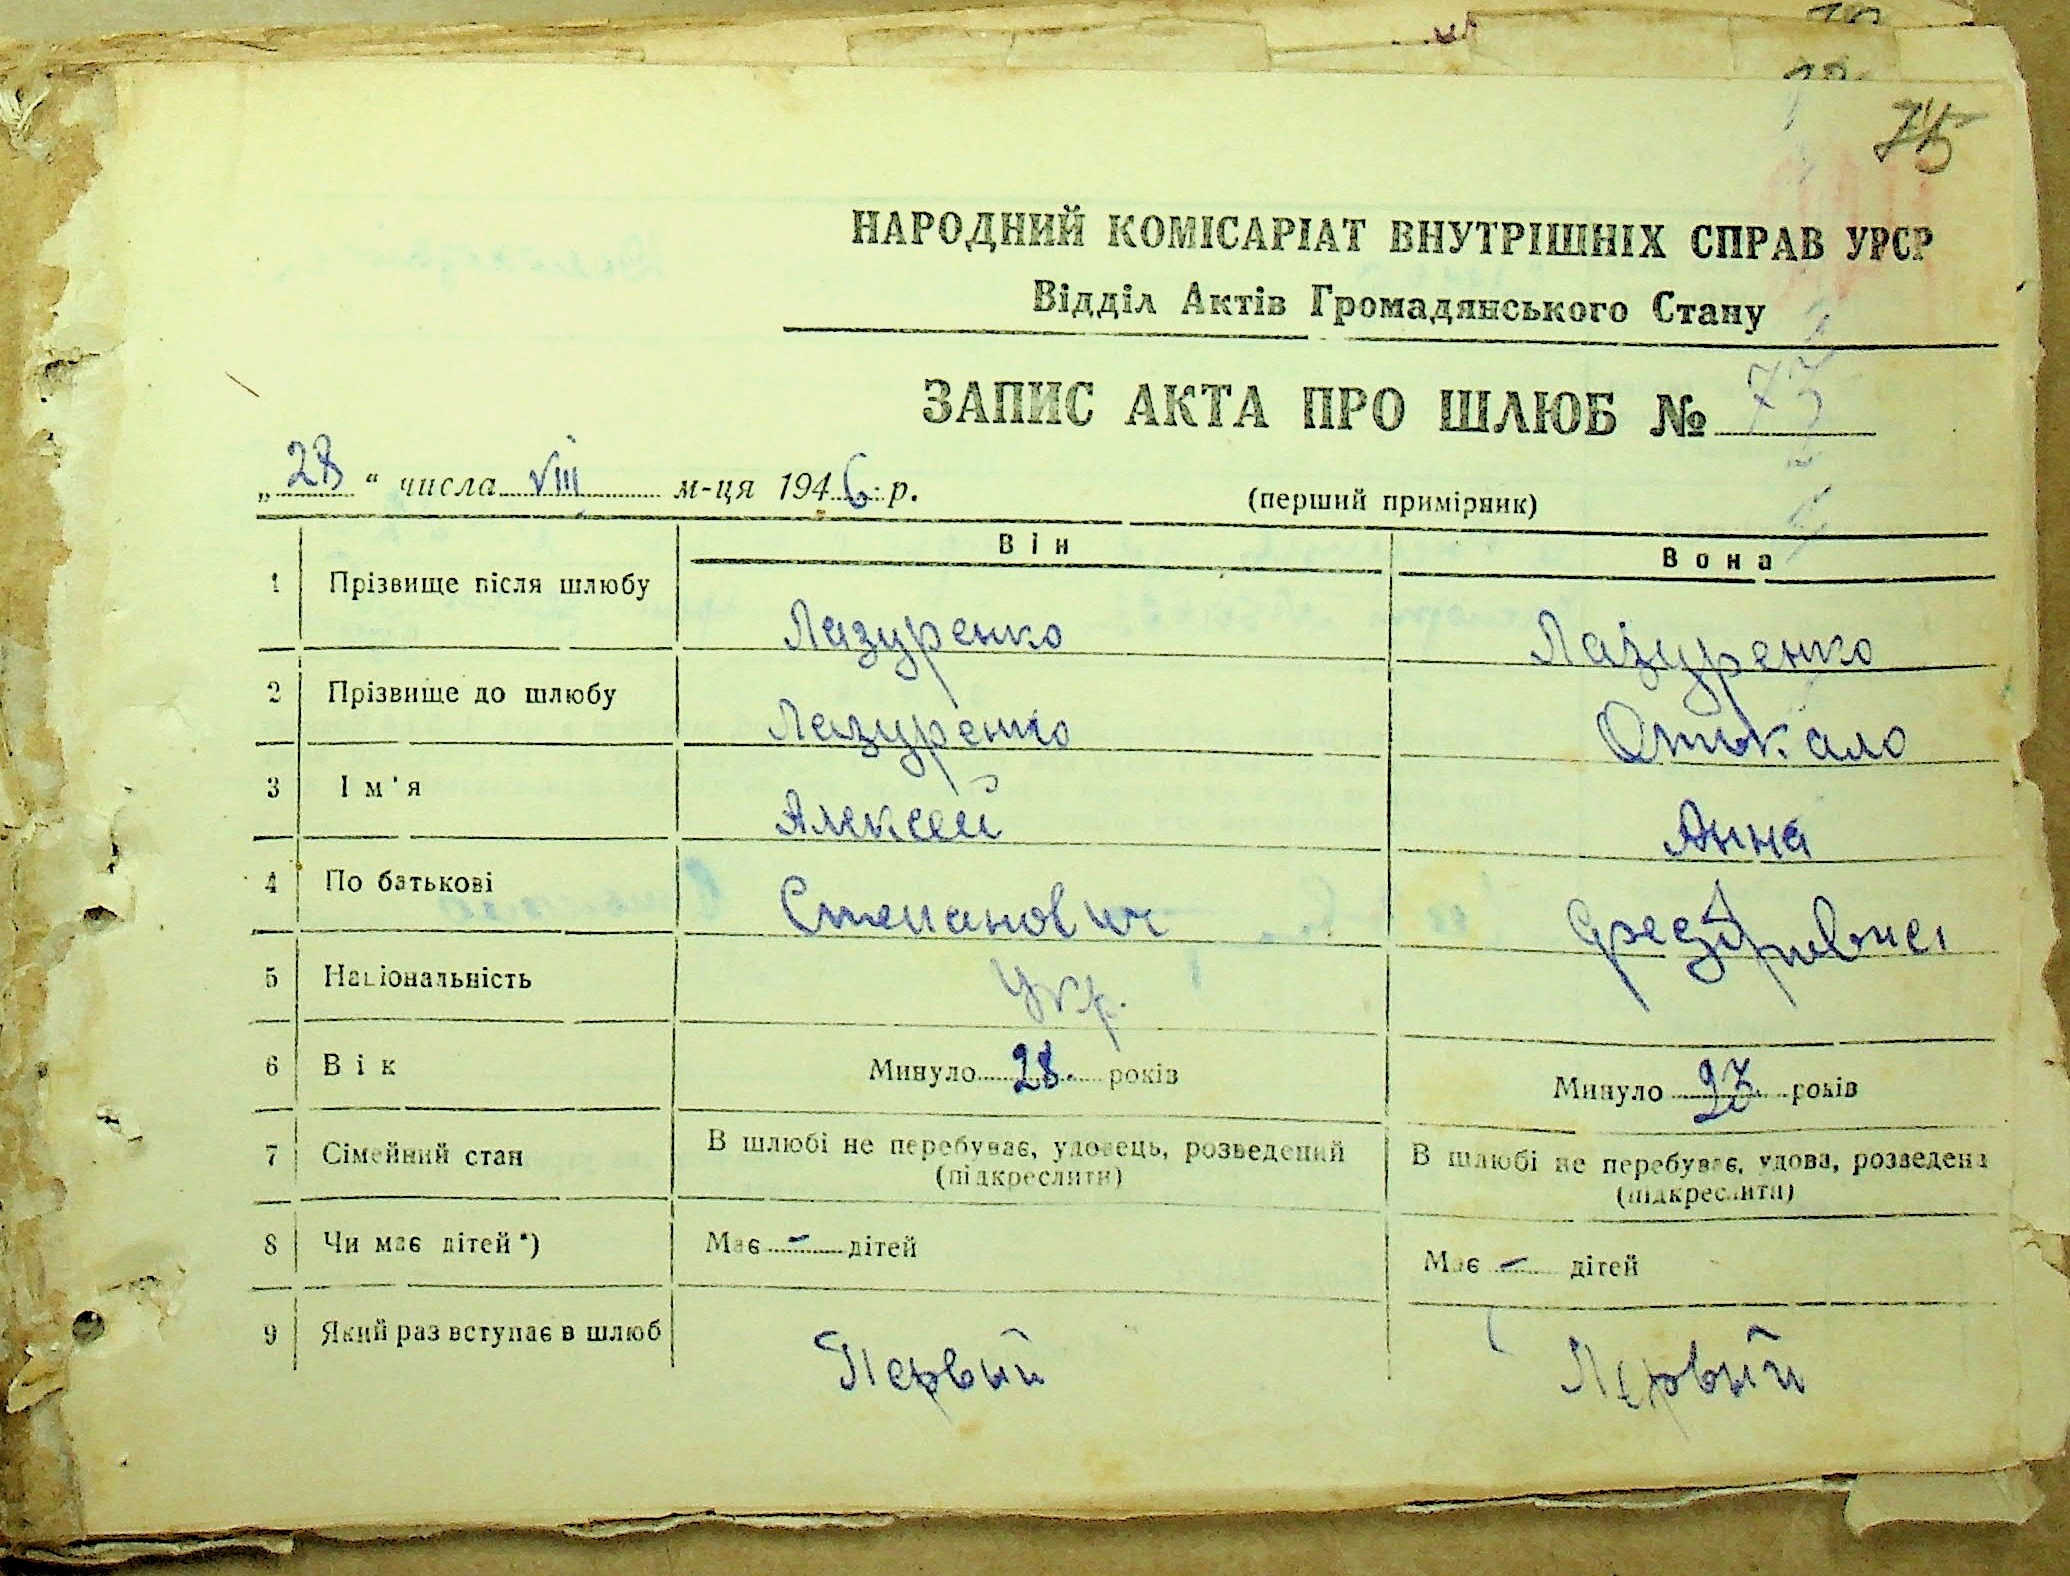 75
НАРОДНИЙ КОМІСАРІАТ ВНУТРІШНІХ СПРАВ УРСР
Відділ Актів Громадянського Стану
ЗАПИС АКТА ПРО ШЛЮБ № 73
„28“ числа VIII м-ця 1946 р. (перший примірник)
Він Вона
1 Прізвище після шлюбу Лазуренко Лазуренко
2 Прізвище до шлюбу Лазуренко
3 Ім'я Алексей Анна
4 По батькові Степанович
5 Національність Укр.
6 Вік Минуло 28. років Минуло 27 років
7 Сімейний стан В шлюбі не перебуває, удовець, розведений (підкреслити) В шлюбі не перебуває, удова, розведена (підкреслити)
8 Чи має дітей*) Має – дітей Має – дітей
9 Який раз вступає в шлюб Первый Первый